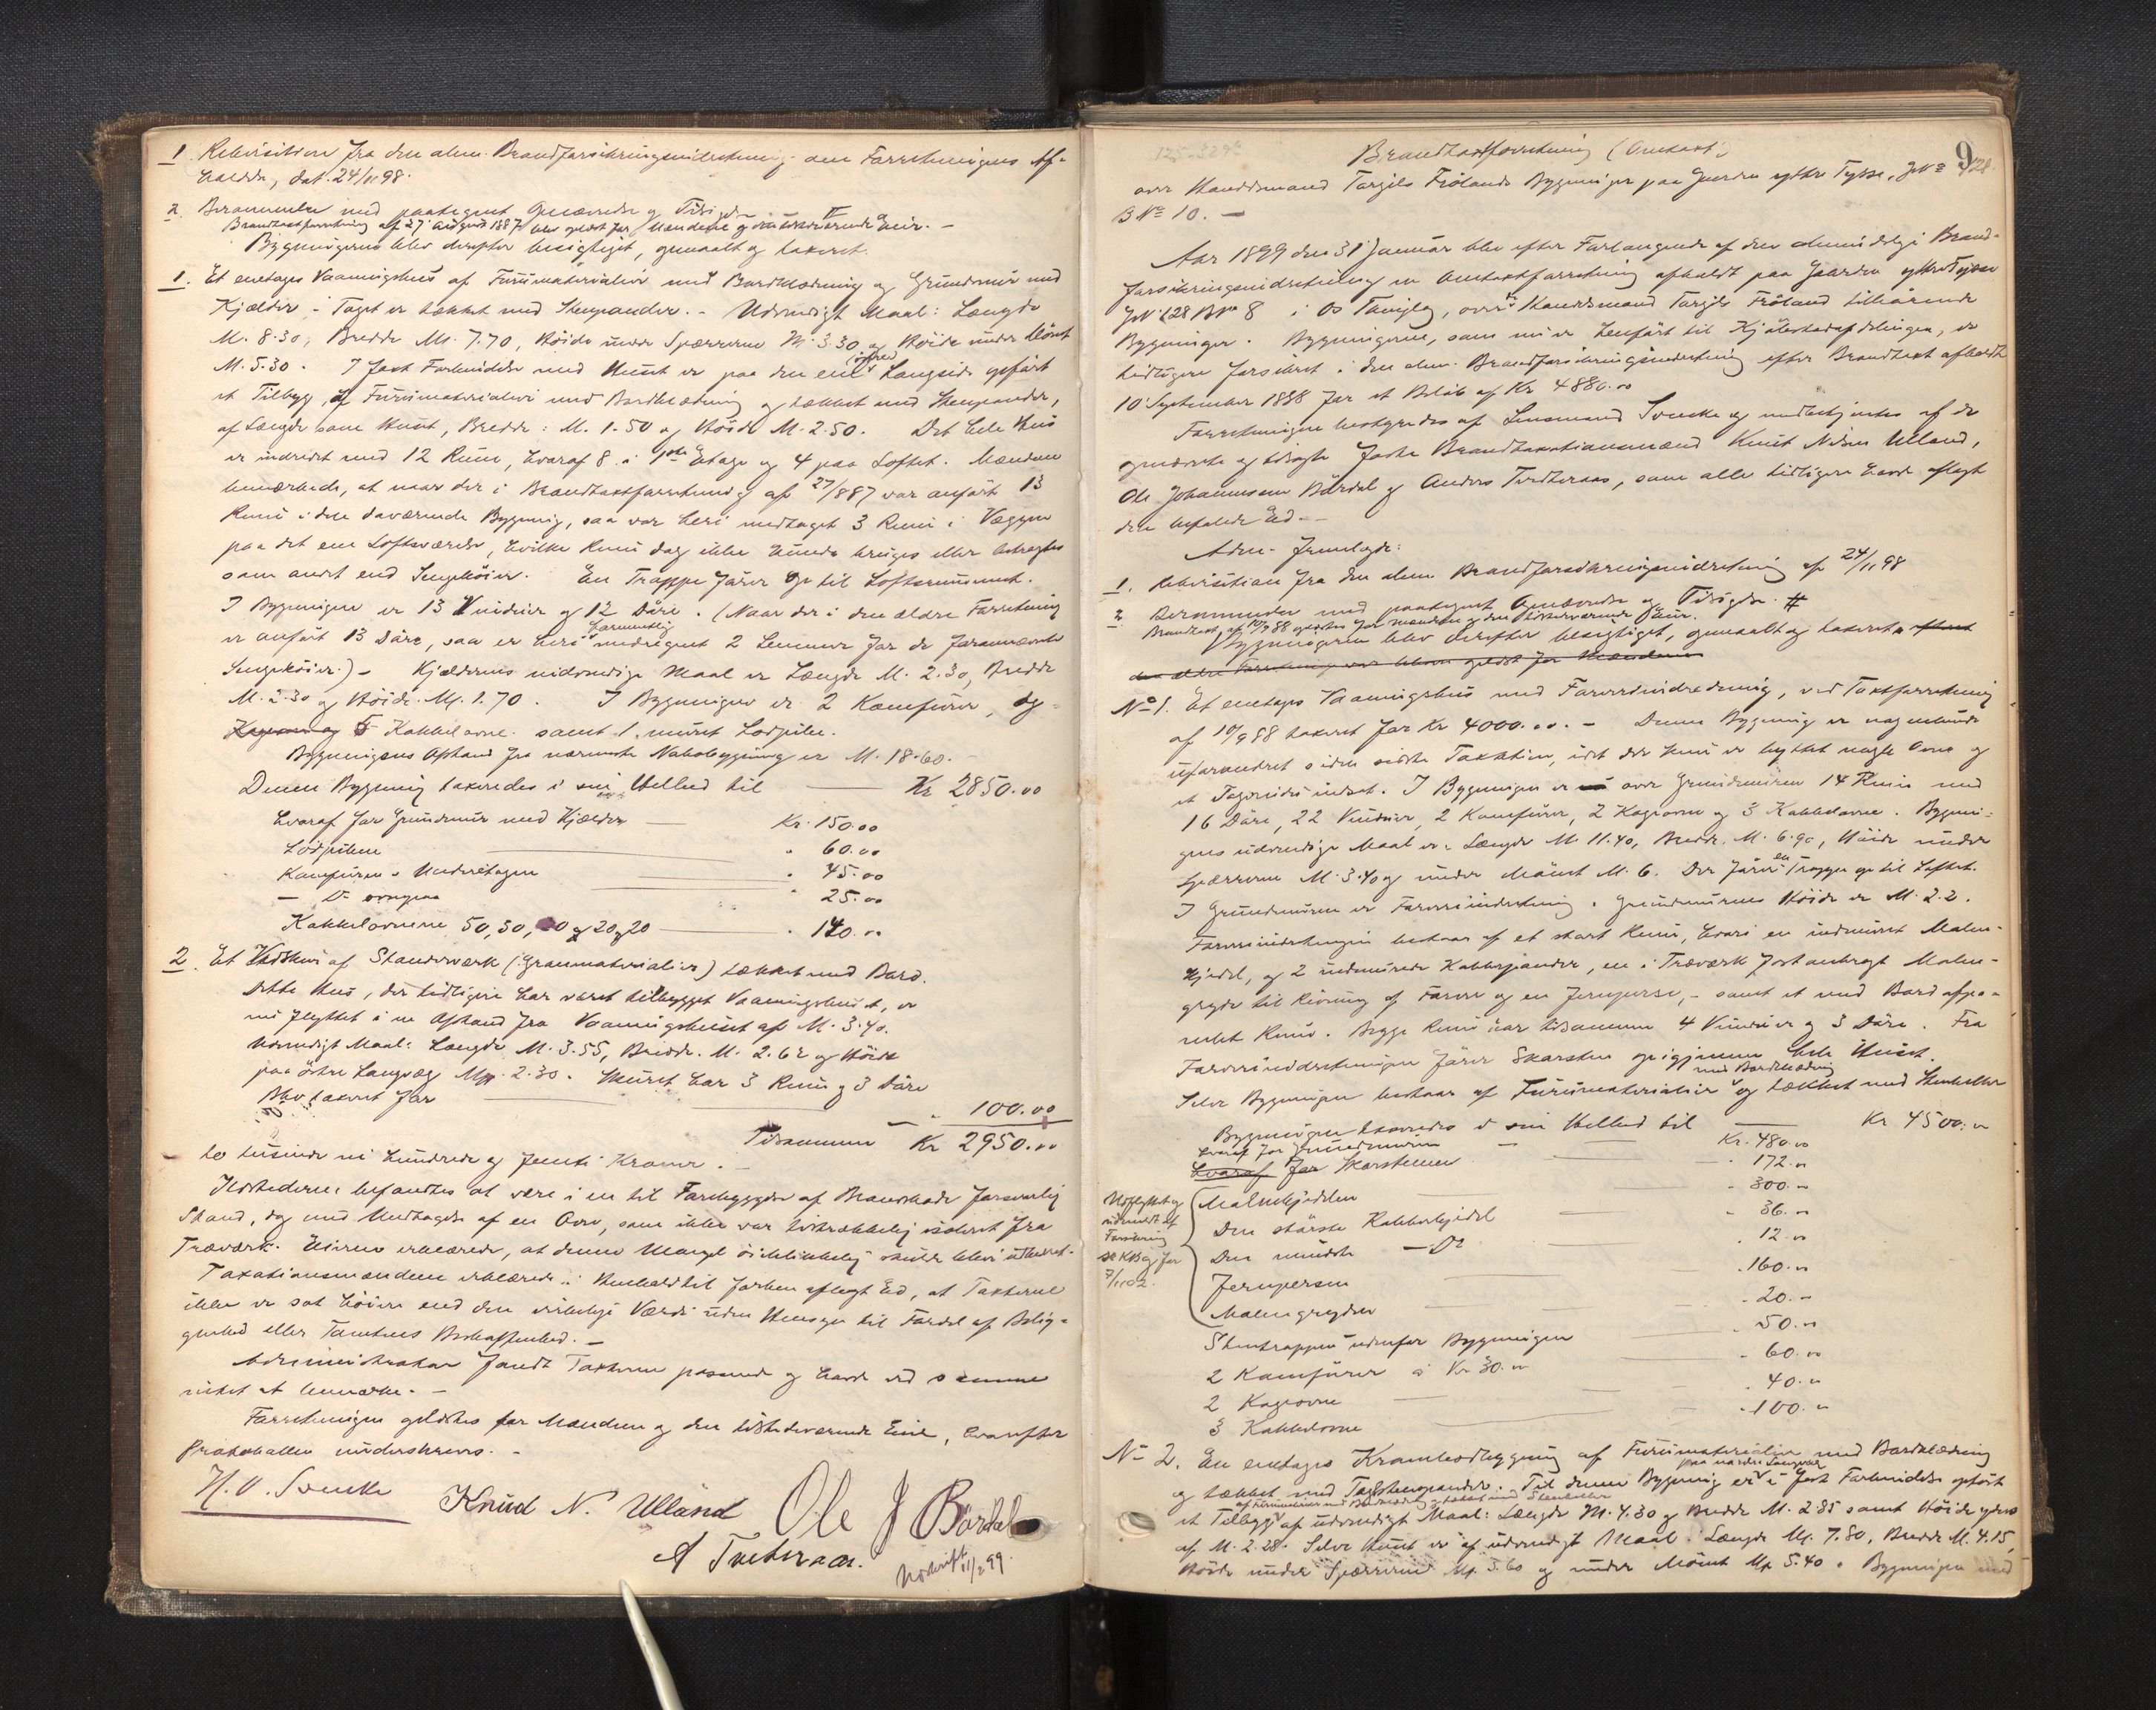 1. Rekvisition fra den alm. Brandforsikringsindretning om Forretningens Af-
holdelse, dat. 24/11 98.
2. Berammelse med paategnet Opnævnelse og Tilsigelse.
Brandtaxtforretning af 27 August 1887 blev oplæst for Mændene og den tilstedeværende Eier. -
Bygningerne blev derefter besigtiget, opmaalt og taxeret.
1. Et enetages Vaaningshus af Furumaterialier med Bordklædning og Grundmur med
Kjælder. - Taget er tækket med Stenpander. - Udvendigt Maal: Længde
M. 8.30, Bredde M. 7.70, Høide under Spærrerne M. 3.30 og Høide under Mønet
M. 5.30. I fast Forbindelse med Huset er paa den ene (øvre) Langside opført
et Tilbyg, af Furumaterialier med Bordklædning og tækket med Stenpander,
af Længde som Huset, Bredde: M. 1.50 og Høide M. 2.50. Det hele Hus
er indredet med 12 Rum, hvoraf 8 i 1ste Etage og 4 paa Loftet. Mændene
bemærkede, at naar der i Brandtaxtforretning af 27/8 87 var anført 13
Rum i den daværende Bygning, saa var heri medtaget 3 Rum i Væggen
paa det ene Loftsværelse, hvilke Rum dog ikke kunde bruges eller betragtes
som andet end Sengekøier. En Trappe fører op til Loftsrummet.
I Bygningen er 13 Vinduer og 12 Døre. (Naar der i den ældre Forretning
er anført 13 Døre, saa er heri formentlig medregnet 2 Lemmer for de fornævnte
Sengekøier.) - Kjælderens indvendige Maal er Længde M. 2.30, Bredde
M. 2.30 og Høide M. 1.70. I Bygningen er 2 Komfurer, og
5 Kakkelovne samt 1 muret Lodpibe.
Bygningens Afstand fra nærmeste Nabobygning er M. 18.60.
Denne Bygning taxeredes i sin Helhed til Kr 2850.00
hvoraf for Grundmur med Kjælder Kr. 150.00
Lodpiben " 60.00
Komfuren i Underetagen " 45.00
- Do ovenpaa " 25.00
Kakkelovnene 50, 30, 20 og 20 " 140.00
2. Et Vedskur af Standerværk (Granmaterialier) tækket med Bord.
Dette Hus, der tidligere har været tilbygget Vaaningshuset, er
nu flyttet i en Afstand fra Vaaningshuset af M. 3.40.
Udvendigt Maal: Længde M. 3.55, Bredde M. 2.62 og Høide
paa østre Langvæg M. 2.30. Skuret har 3 Rum og 3 Døre
Blev taxeret for " 100.00
Tilsammen Kr 2950.00
to tusinde ni hundrede og femti Kroner. -
Ildstederne befandtes at være i en til Forebyggelse af Brandskade forsvarlig
Stand, dog med Undtagelse af en Ovn, som ikke var tilstrækkelig isoleret fra
Træværk. Eieren erklærede, at denne Mangel øieblikkelig skulde blive udbedret.
Taxationsmændene erklærede i Henhold til forhen aflagt Ed, at Taxterne
ikke er sat høiere end den virkelige Værdi uden Hensyn til Fordel af Belig-
genhed eller Tomtens Beskaffenhed. -
Administrator fandt Taxterne passende og havde ved samme
intet at bemærke. -
Forretningen oplæstes for Mændene og den tilstedeværende Eier, hvorefter
Protokollen underskreves. -
H. O. Svenke Knud N. Ulland Ole J Bördal
A Tveteraas.
Udskrift 11/2 99.
9
Brandtaxtforretning (Omtaxt)
over Handelsmand Torgils Frölands Bygninger paa Gaarden ythre Tysse, GNo 128
BNo 10. -
Aar 1899 den 31 Januar blev efter Forlangende af den almindelige Brand-
forsikringsindretning en Omtaxtforretning afholdt paa Gaarden ythre Tysse
GNo 128 BNo 8 i Os Thinglag, over de Handelsmand Torgils Fröland tilhørende
Bygninger. Bygningerne, som nu er henført til Kjøbstadafdelingen, er
tidligere forsikret i den alm. Brandforsikringsindretning efter Brandtaxt afholdt
10 September 1888 for et Beløb af Kr 4880.00
Forretningen bestyredes af Lensmand Svenke og medbetjentes af de
opnævnte og tilsagte faste Brandtaxationsmænd Knut Nilsen Ulland,
Ole Johannessen Bördal og Anders Tveteraas, som alle tidligere havde aflagt
den befalede Ed. -
Adm. fremlagde:
1. Rekvisition fra den alm Brandforsikringsindretning af 24/11 98
2. Berammelse med paategnet Opnævnelse og Tilsigelse. #
Brandtaxt af 10/9 88 oplæstes for Mændene og den tilstedeværende Eier.
Bygningerne blev derefter besigtiget, opmaalt og taxeret, efterat
den ældre Forretning var bleven oplæst for Mændene
No 1. Et enetages Vaaningshus med Farveriindredning, ved Taxtforretning
af 10/9 88 taxeret for Kr 4000.00. - Denne Bygning er nogenlunde
uforandret siden sidste Taxation, idet der kun er byttet nogle Ovne og
et Tagvindu indsat. I Bygningen er over Grundmuren 14 Rum med
16 Døre, 22 Vinduer, 2 Komfurer, 2 Kogeovne og 3 Kakkelovne. Bygnin-
gens udvendige Maal er: Længde M. 11.40, Bredde M. 6.90, Høide under
Spærrerne M. 3.40 og under Mønet M. 6. Der fører en Trappe op til Loftet.
I Grundmuren er Farveriindretning. Grundmurens Høide er M. 2.2.
Farveriindretningen bestaar af et stort Rum, hvori en indmuret Malm-
kjedel, og 2 indmurede Kobberpander, en i Træværk fast anbragt Malm-
gryde til Rivning af Farve og en Jernpresse, - samt et med Bord afpa-
nelet Rum. Begge Rum har tilsammen 4 Vinduer og 3 Døre. Fra
Farveriindretningen fører Skorsten op igjennem hele Huset.
Selve Bygningen bestaar af Furumaterialier med Bordklædning og tækket med Stenheller
Bygningen taxeredes i sin Helhed til Kr 4500.00
hvoraf for Grundmuren Kr. 480.00
hvoraf for Skorstenen " 172.00
Malmkjedelen " 300.00
Den største Kobberkjedel " 36.00
Den mindste - Do " 12.00
Jernpressen " 160.00
Malmgryden " 20.00
Udflyttet og
udmeldt af
Forsikring
se KBog for
7/1 02.
Stentrappen udenfor Bygningen " 50.00
2 Komfurer à Kr 30.00 " 60.00
2 Kogeovne " 40.00
3 Kakkelovne " 100.00
No 2. En enetages Krambodbygning af Furumaterialier med Bordklædning
og tækket med Tagstenspander. Til denne Bygning er paa nordre Langvæg i fast Forbindelse opført
et Tilbyg af Furumaterialier med Bordklædning tækket med Stenheller af udvendigt Maal: Længde M. 4.30 og Bredde M. 2.85 samt Høide yderst
af M. 2.28. Selve Huset er af udvendigt Maal: Længde M. 7.80, Bredde M. 4.15,
Høide under Spærrerne M. 3.60 og under Mønet M. 5.40. Bygningen med